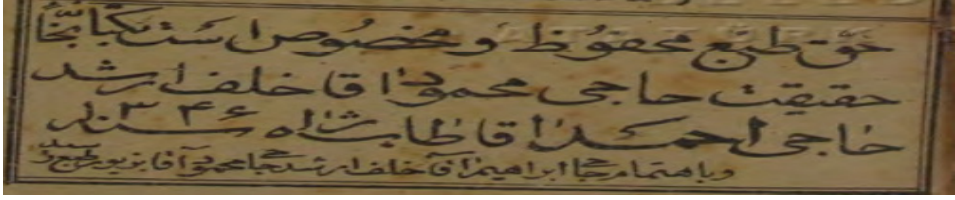 حق طبع محفوظ و مخصوص است بکتابخانۀ
حقیقت حاجی محمود اقا خلف ارشد
حاجی احمد اقا طاب ثراه سنه ۱۳۴۶
و باهتمام حاجی ابراهیم آقا خلف ارشد حاجی محمود آقا بزیور طبع